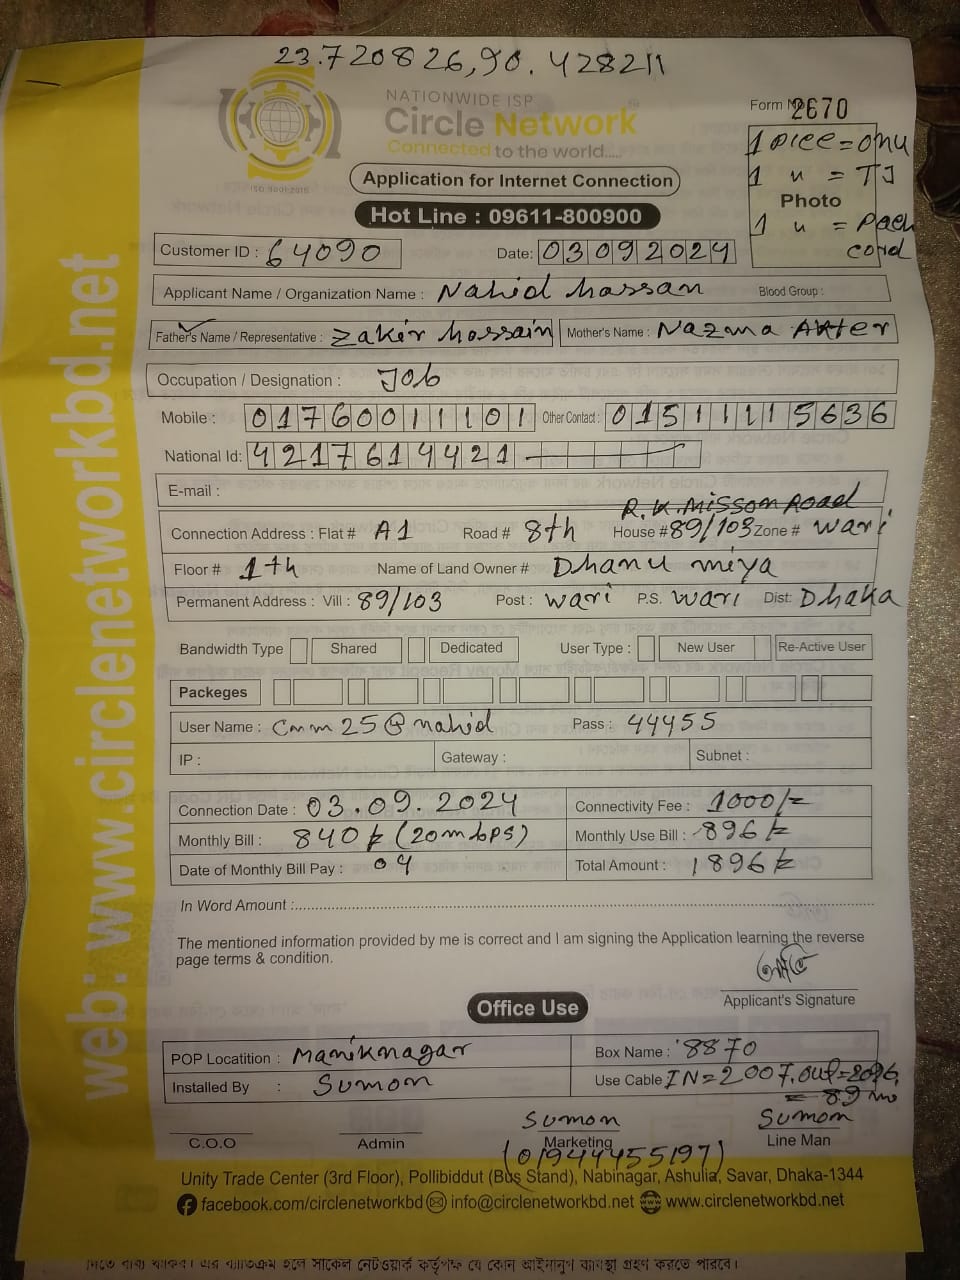 23.720826,90.428211
NATIONWIDE ISP
Circle Network
Connected to the world.....
ISO 9001:2015
Form No 2670
1 piece = onu
1 u = TJ
Photo
1 u = Pach cord
Application for Internet Connection
Hot Line : 09611-800900
Customer ID : 64090 Date: 03092024
Applicant Name / Organization Name : Nahid hassan Blood Group :
Father's Name / Representative : Zakir hossain Mother's Name : Nazma Akter
Occupation / Designation : Job
Mobile : 01760011101 Other Contact : 01511115636
National Id: 4217614421
E-mail :
R.K. Misson Road
Connection Address : Flat # A1 Road # 8th House # 89/103 Zone # wari
Floor # 1th Name of Land Owner # Dhanu miya
Permanent Address : Vill : 89/103 Post : wari P.S. wari Dist: Dhaka
Bandwidth Type Shared Dedicated User Type : New User Re-Active User
Packeges
User Name : Cmm25@nahid Pass : 44455
IP : Gateway : Subnet :
Connection Date : 03.09.2024 Connectivity Fee : 1000/=
Monthly Bill : 840/= (20mbps) Monthly Use Bill : 896/=
Date of Monthly Bill Pay : 04 Total Amount : 1896/=
In Word Amount :
The mentioned information provided by me is correct and I am signing the Application learning the reverse
page terms & condition.
Applicant's Signature
Office Use
POP Locatition : Maniknagar Box Name : 8870
Installed By : Sumon Use Cable IN=2007, out=2096
= 89 m
Sumon Sumon
C.O.O Admin Marketing Line Man
(01944455197)
Unity Trade Center (3rd Floor), Pollibiddut (Bus Stand), Nabinagar, Ashulia, Savar, Dhaka-1344
facebook.com/circlenetworkbd info@circlenetworkbd.net www.circlenetworkbd.net
web: www.circlenetworkbd.net
সার্কেল নেটওয়ার্ক কর্তৃপক্ষ যে কোন আইনানুগ ব্যবস্থা গ্রহণ করতে পারবে।